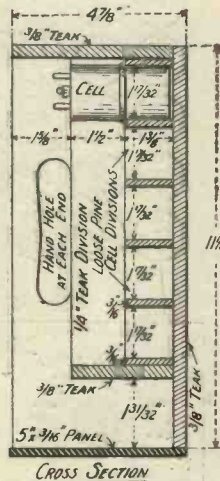 4⅞"
⅜" TEAK
CELL
1⅝"
1½"
1⅜"
1⁷⁄₃₂"
1⁷⁄₃₂"
1⁷⁄₃₂"
1⁷⁄₃₂"
1⁷⁄₃₂"
HAND HOLE
AT EACH END
¼" TEAK DIVISION
LOOSE PINE
CELL DIVISIONS
³⁄₁₆"
³⁄₁₆"
⅜" TEAK
⅜" TEAK
1³¹⁄₃₂"
5" x ³⁄₁₆" PANEL
CROSS SECTION